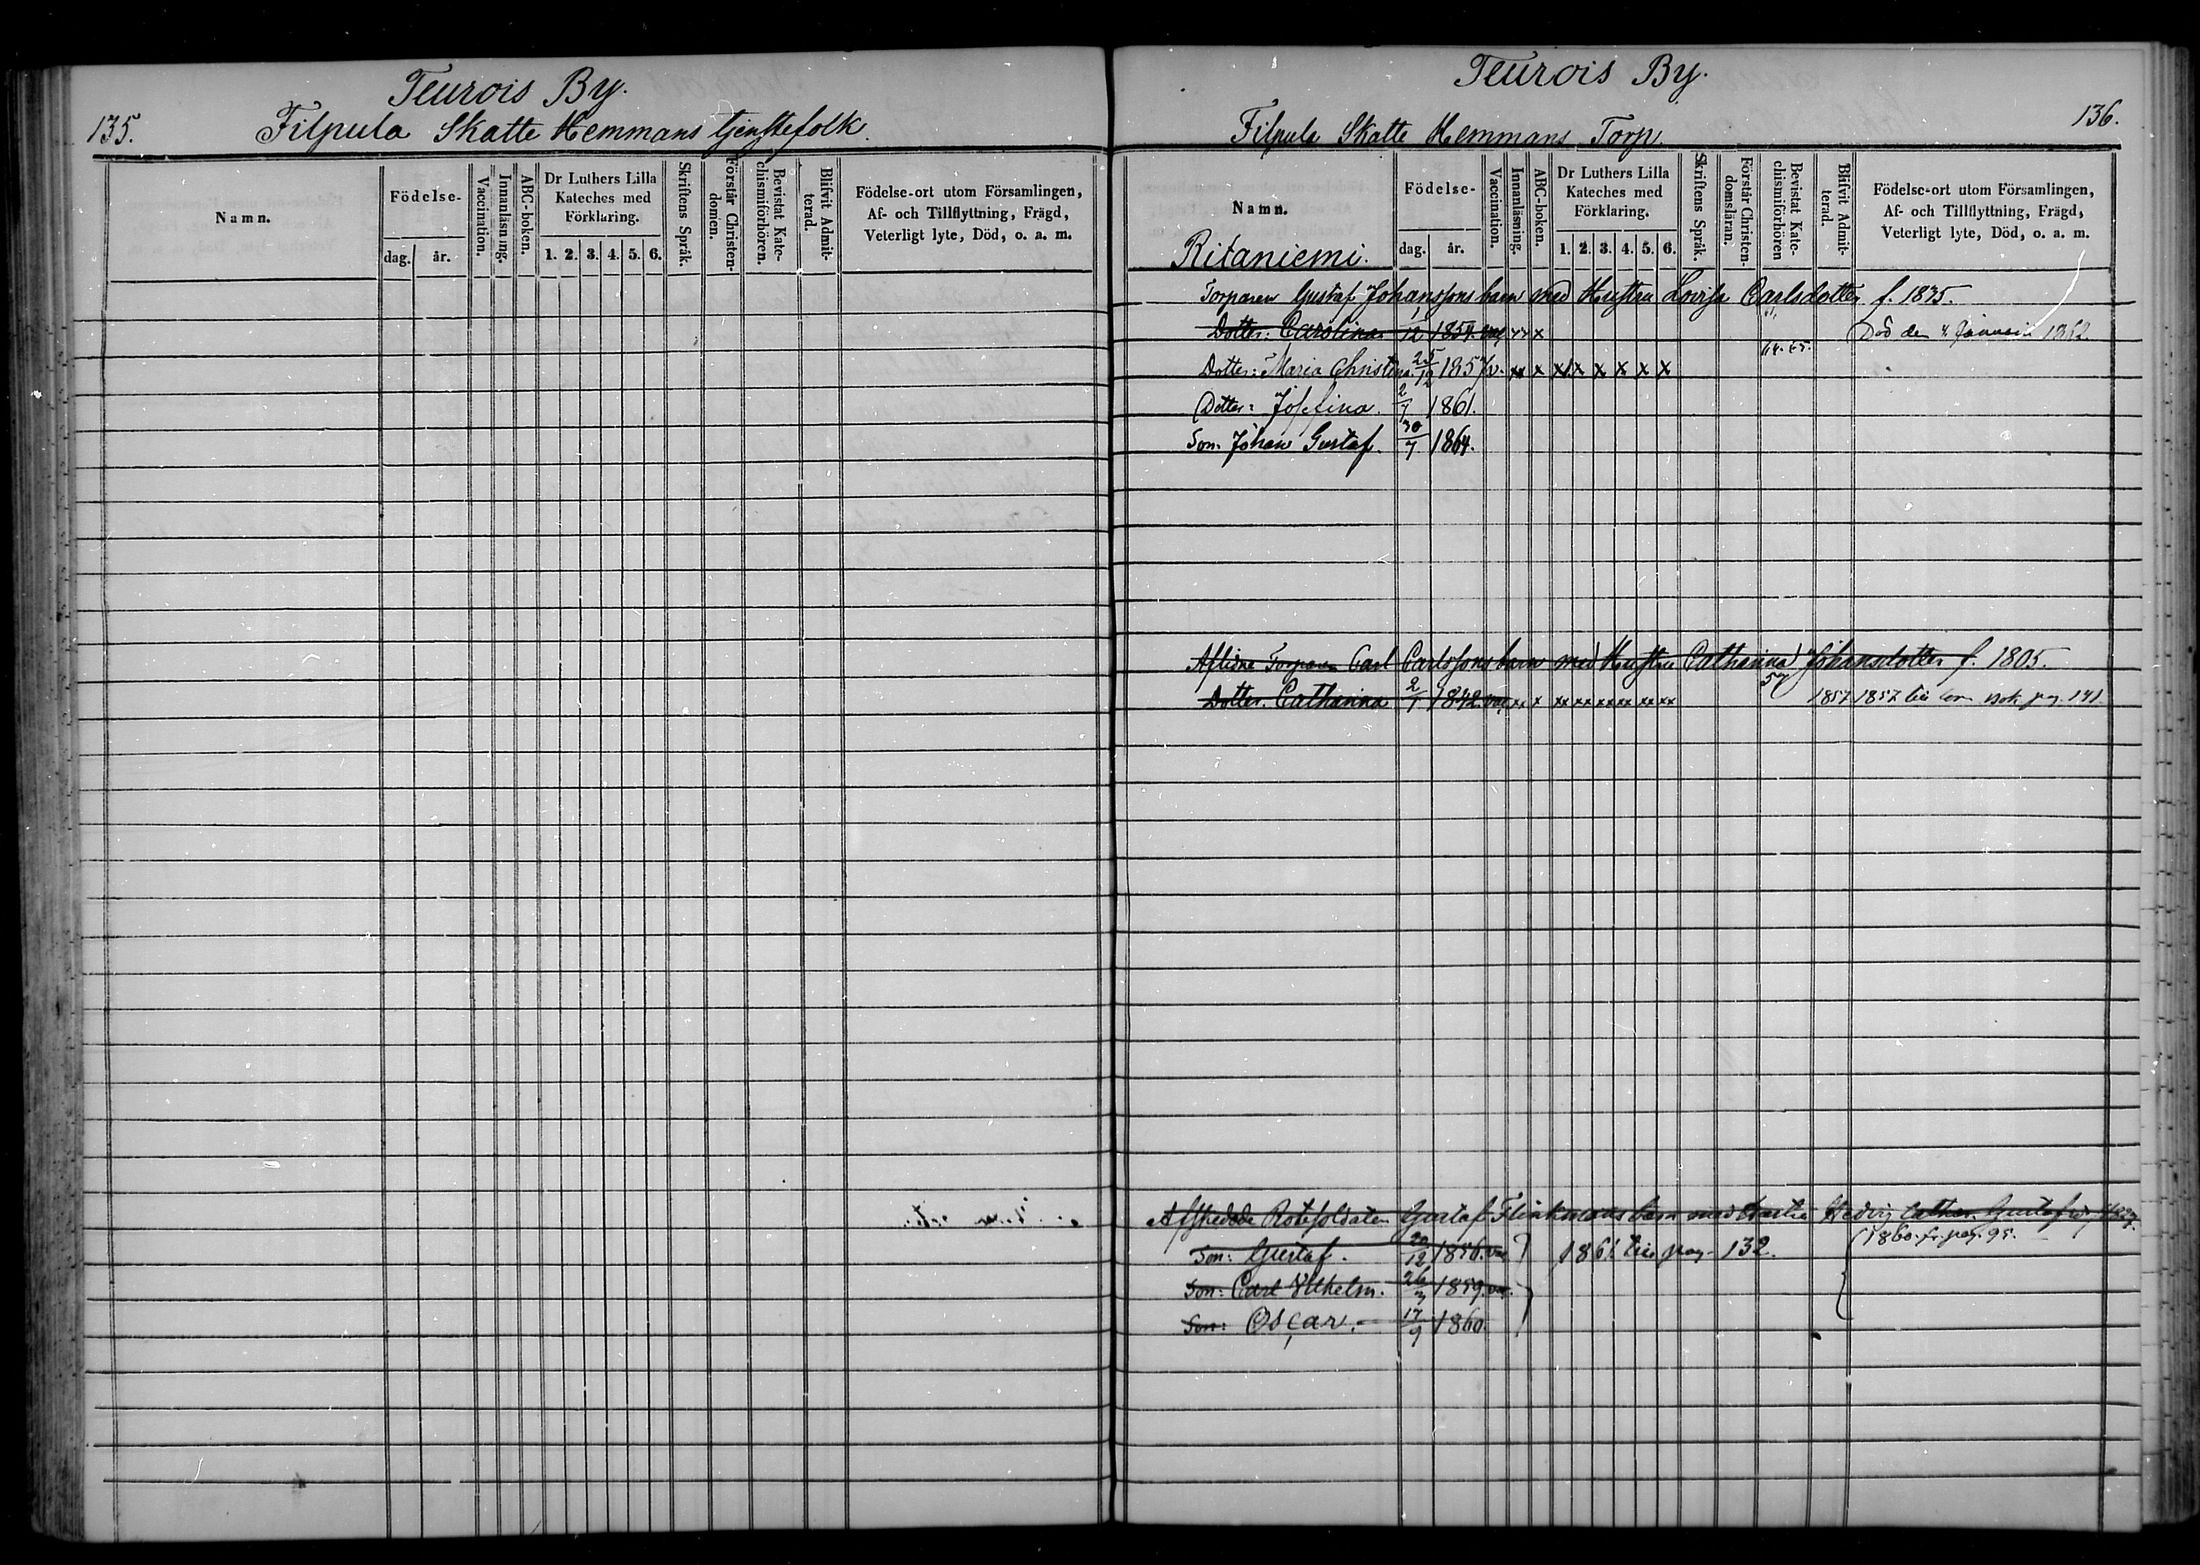 Teurois By.
135.
Filpula Skatte Hemmans tjenstefolk.
Namn.
Födelse-
dag. år.
Vaccination.
Innanläsning.
ABC-boken.
Dr Luthers Lilla
Kateches med
Förklaring.
1. 2. 3. 4. 5. 6.
Skriftens Språk.
Förstår Christen-
domen.
Bevistat Kate-
chismiförhören.
Blifvit Admit-
terad.
Födelse-ort utom Församlingen,
Af- och Tillflyttning, Frägd,
Veterligt lyte, Död, o. a. m.
Teurois By.
136.
Filpula Skatte Hemmans Torp.
Namn.
Ritaniemi.
Födelse-
dag. år.
Vaccination.
Innanläsning.
ABC-boken.
Dr Luthers Lilla
Kateches med
Förklaring.
1. 2. 3. 4. 5. 6.
Skriftens Språk.
Förstår Christen-
domsläran.
Bevistat Kate-
chismiförhören
Blifvit Admit-
terad.
Födelse-ort utom Församlingen,
Af- och Tillflyttning, Frägd,
Veterligt lyte, Död, o. a. m.
Torparen Gustaf Johanssons barn med Hustru Lovisa Carlsdotter f. 1835.
Dotter: Carolina 1/12 1854. vac x x x Död den 4 Januari 1862.
Dotter: Maria Christina 25/12 1857 v. xx x x x x x x x 64. 65.
Dotter: Josefina. 1861.
Son: Johan Gustaf. 30/7 1864.
Aflidne Torparen Carl Carlssons barn med Hustru Catharina Johansdotter f. 1805.
Dotter. Catharina 2/1 1842. vac xx x xx xx xx xx xx xx 57 1857 1857 bok pag. 141
Afskedade Rotesoldaten Gustaf Flinkmans barn med Hustru Hedvig Cathar. Gustafsdr
Son: Gustaf. 20/12 1856. vac } 1861 till pag. 132. { 1860 fr. pag. 95.
Son: Carl Vilhelm. 26/3 1859. vac.
Son: Oscar. 17/9 1860.